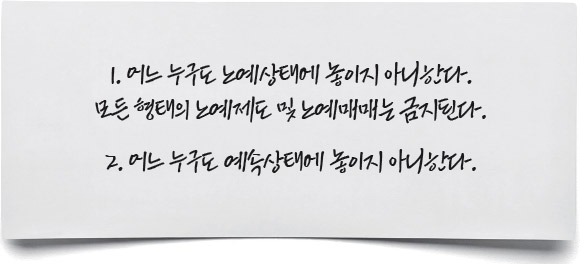 1. 어느 누구도 노예상태에 놓이지 아니한다.
모든 형태의 노예제도 및 노예매매는 금지된다.
2. 어느 누구도 예속상태에 놓이지 아니한다.